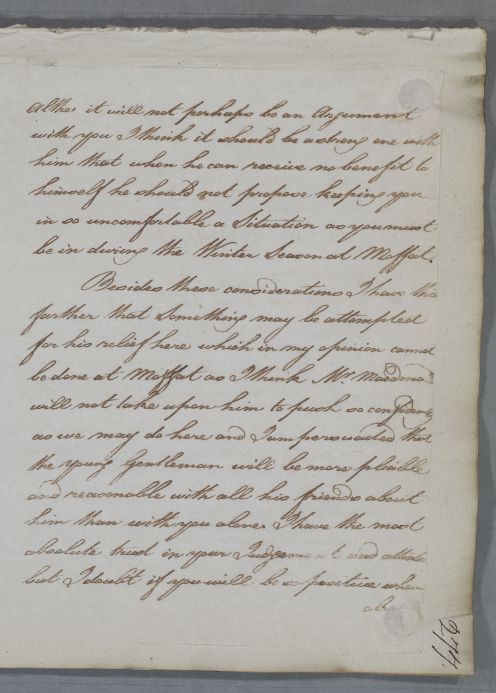 altho' it will not perhaps be an Argument
with you I think it should be a strong one with
him that when he can receive no benefit to
himself he should not propose keeping you
in so uncomfortable a Situation as you must
be in during the Winter Season at Moffat.
Besides these considerations I have this
farther that Something may be attempted
for his relief here which in my opinion cannot
be done at Moffat as I think Mr. Macdonald
will not take upon him to push so confidently
as we may do here and I am perswaded that
the young Gentleman will be more pliable
and reasonable with all his friends about
him than with you alone. I have the most
absolute trust in your Judgement and
but I doubt if you will be so positive when